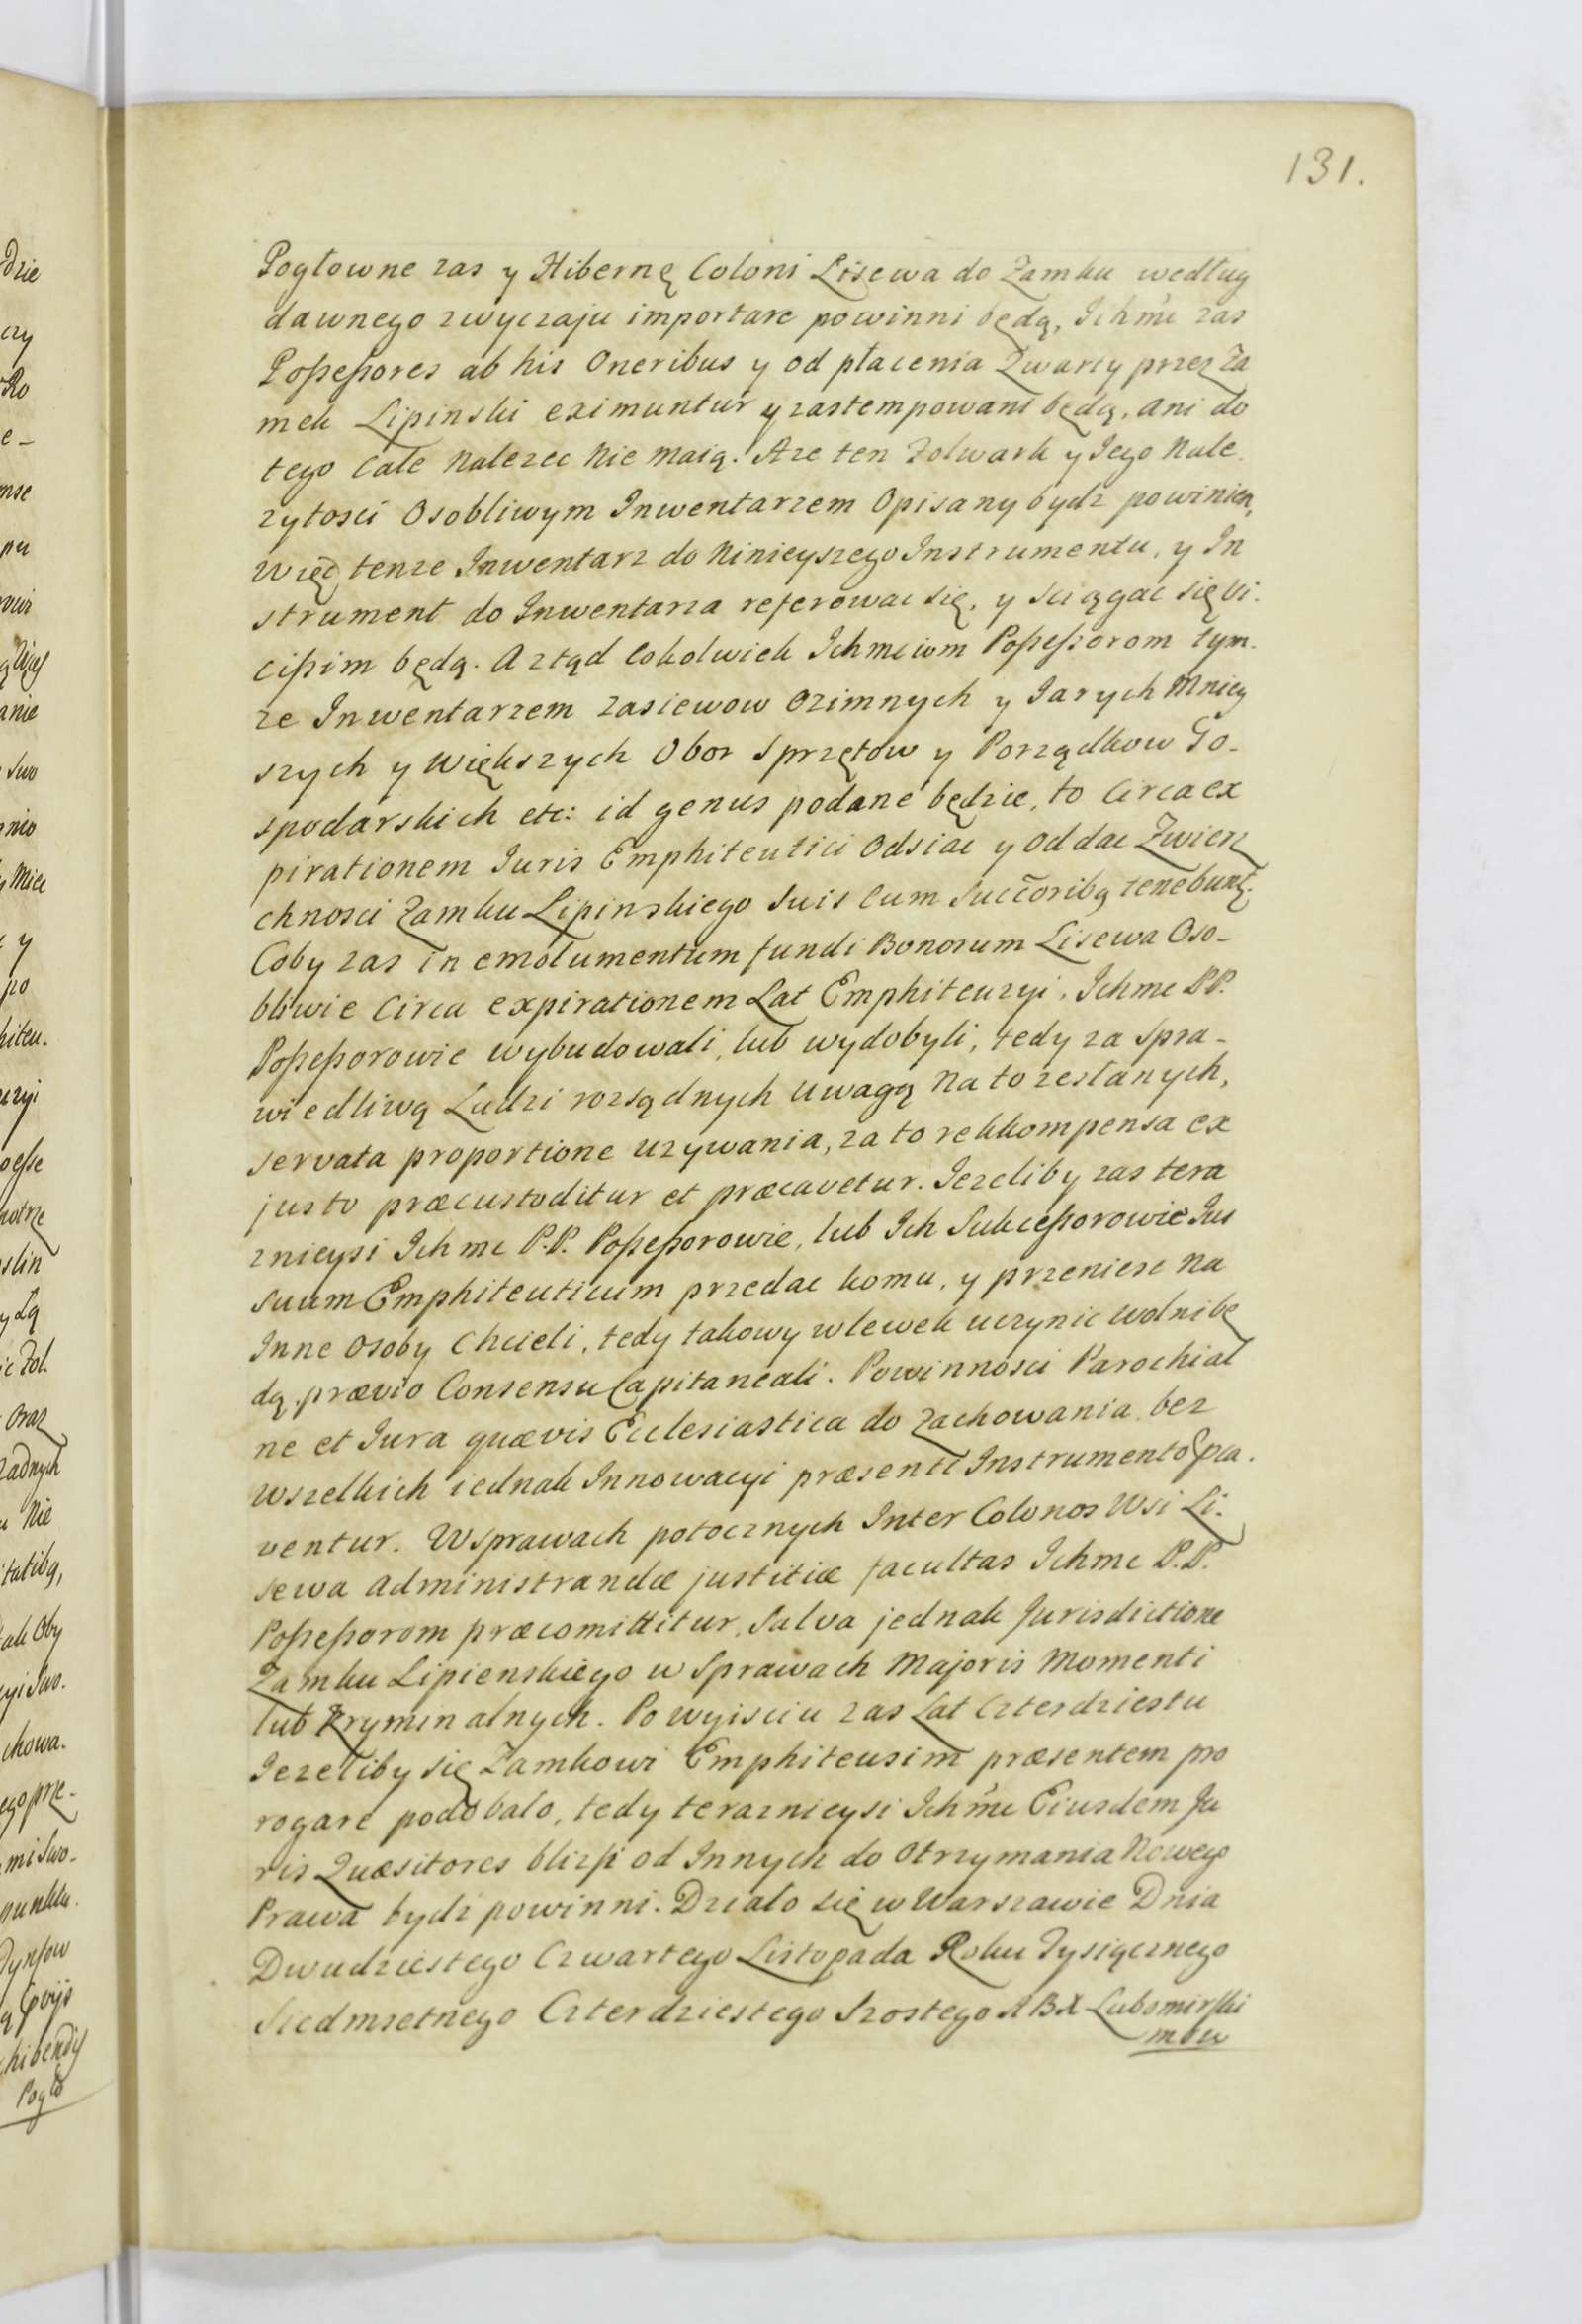 131.
Pogłowne zas y Hibernę Coloni Lisewa do Zamku według
dawnego zwyczaju importare powinni będą, Ichmc zas
Possessores ab his Oneribus y od płacenia Kwarty przez Za
mek Lipinski eximuntur y zastempowani będą, ani do
tego Cale nalezec nie maią. Aze ten Folwark y Jego nale
zytosci Osobliwym Inwentarzem Opisany bydz powinien,
Więc tenze Inwentarz do Ninieyszego Instrumentu, y In
strument do Inwentarza referowac się, y sciągac się vi-
cissim będą. A ztąd Cokolwiek Ichmciom Possessorom tym-
ze Inwentarzem zasiewow Ozimnych y Jarych Mniey
szych y Większych Obor Sprzętow y Porządkow Go-
spodarskich etc: id genus podane będzie, to Circa ex
pirationem Juris Emphiteutici Odsiac y oddac Zwierz
chnosci Zamku Lipinskiego Suis Cum Succoribq tenebunt.
Coby zas in emolumentum fundi Bonorum Lisewa Oso-
bliwie Circa expirationem Lat Emphiteuzyi, Ichmc P.P.
Possessorowie wybudowali, lub wydobyli, tedy za Spra-
wiedliwą Ludzi rozsądnych uwagą na to zesłanych,
servata proportione uzywania, za to rekkompensa ex
justo præcustoditur et præcavetur. Jezeliby zas tera
znieysi Ichmc P.P. Possessorowie, lub Ich Sukcessorowie Jus
suum Emphiteuticum przedac komu, y przeniesc na
Inne osoby Chcieli, tedy takowy wlewek uczynic wolni bę
dą, prævio Consensu Capitaneali. Powinnosci Parochial
ne et Jura quævis Ecclesiastica do zachowania bez
wszelkich iednak Innowacyi præsenti Instrumento Ca-
ventur. W sprawach potocznych Inter Colonos Wsi Li-
sewa administrandæ justitiæ facultas Ichmc P.P.
Possessorom præcomittitur, Salva jednak Jurisdictione
Zamku Lipienskiego w Sprawach Majoris Momenti
lub Kryminalnych. Po wyisciu zas Lat Czterdziestu
Jezeliby się Zamkowi Emphiteusim præsentem pro
rogare podobało, tedy teraznieysi Ichmc Eiusdem Ju
ris Quæsitores blizsi od Innych do Otrzymania Nowego
Prawa bydz powinni. Działo się w Warszawie Dnia
Dwudziestego Czwartego Listopada Roku Tysiącznego
Siedmsetnego Czterdziestego Szostego A B X Lubomirski
mbw